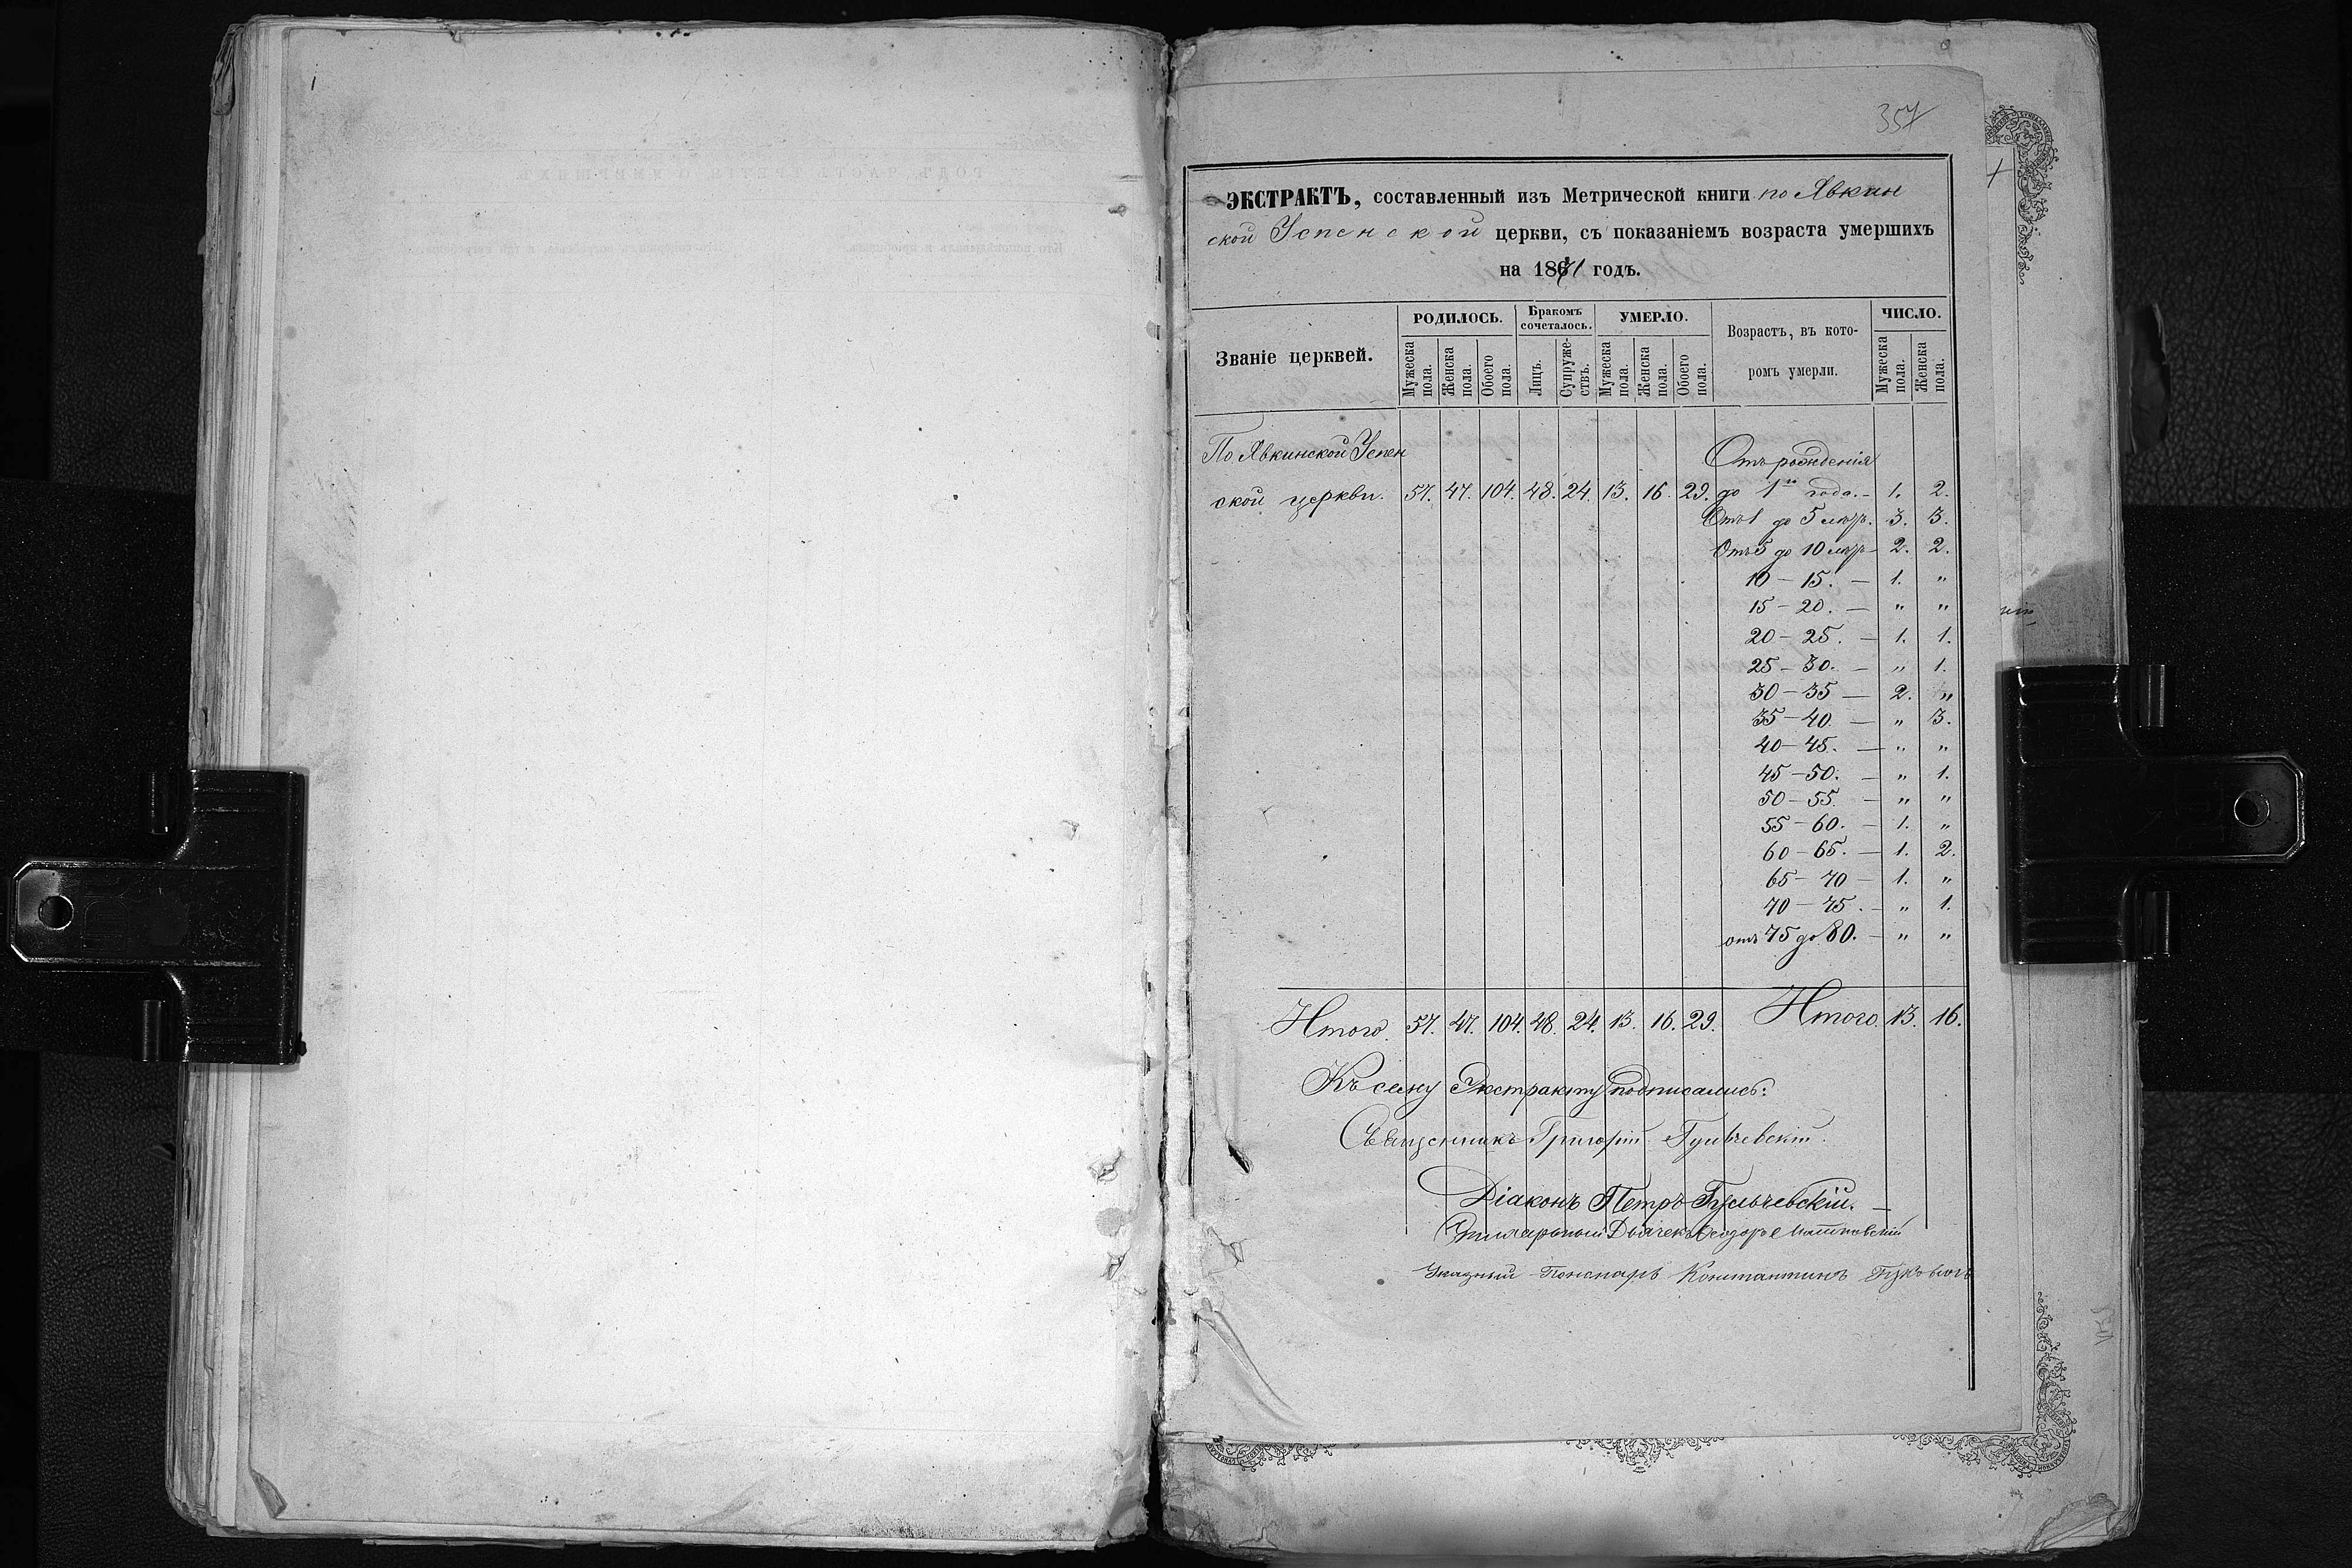 357
ЭКСТРАКТЪ, составленный изъ Метрической книги по Явкин
ской Успенской церкви, съ показаніемъ возраста умершихъ
на 1871 годъ.
Званіе церквей.
РОДИЛОСЬ.
Мужеска пола.
Женска пола.
Обоего пола.
Бракомъ сочеталось.
Лицъ.
Супружествъ.
УМЕРЛО.
Мужеска пола.
Женска пола.
Обоего пола.
Возрастъ, въ кото-
ромъ умерли.
ЧИСЛО.
Мужеска пола.
Женска пола.
По Явкинской Успен
Отъ рожденія
ской церкви. 57. 47. 104. 48. 24. 13. 16. 29. до 1го года. - 1. 2.
Отъ 1 до 5 лѣтъ. 3. 3.
Отъ 5 до 10 лѣтъ - 2. 2.
10 - 15. - 1. "
15 - 20. - " "
20 - 25. - 1. 1.
25 - 30. - " 1.
30 - 35 - 2. "
35 - 40. - " 3.
40 - 45. - " "
45 - 50. - " 1.
50 - 55. - " "
55 - 60. - 1. "
60 - 65. - 1. 2.
65 - 70 - 1. "
70 - 75. - " 1.
отъ 75 до 80. - " "
Итого. 57. 47. 104. 48. 24. 13. 16. 29. Итого. 13. 16.
Къ сему Экстракту подписались:
Священникъ Григорій Гульчевскій.
Діаконъ Петръ Гульчевскій. -
Дьячекъ Ѳеодоръ
Указный Пономарь Константинъ